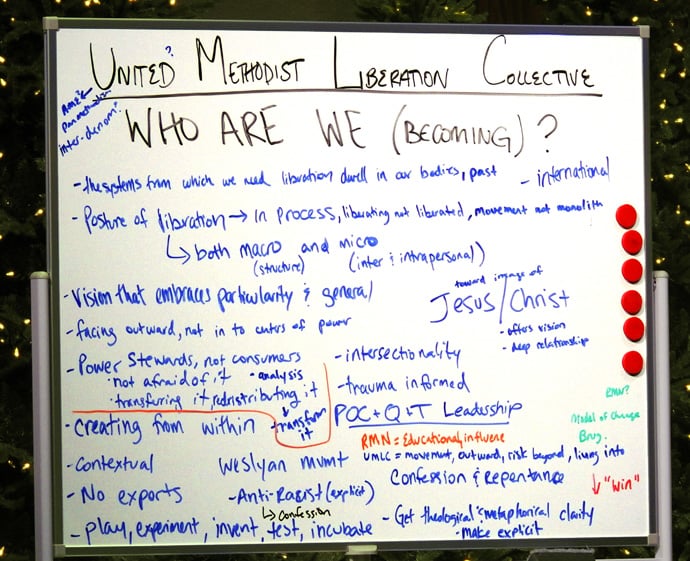 ?
UNITED METHODIST LIBERATION COLLECTIVE
AME?
Pan methodism
inter-denom?
WHO ARE WE (BECOMING)?
- the systems from which we need liberation dwell in our bodies, past
- international
- Posture of liberation → in process, liberating not liberated, movement not monolith
↳ both macro and micro
(structure) (inter & intrapersonal)
- Vision that embraces particularity & general
toward image of
Jesus/Christ
• offers vision
• deep relationship
- facing outward, not in to centers of power
- Power Stewards, not consumers
• not afraid of it • analysis
• transfuring it, redistributing it
↓
• transform it
- intersectionality
- trauma informed
POC + Q + T Leadership
- Creating from within
RMN = Educational, influence
UMLC = movement, outward, risk beyond, living into
RMN?
Model of Change
↓ "Win"
- Contextual
Weslyan mvmt
Confession & Repentance
- No exports
- Anti-Racist (explicit)
↳ confession
- Get theological & metaphorical clarity
• make explicit
- play, experiment, invent, test, incubate